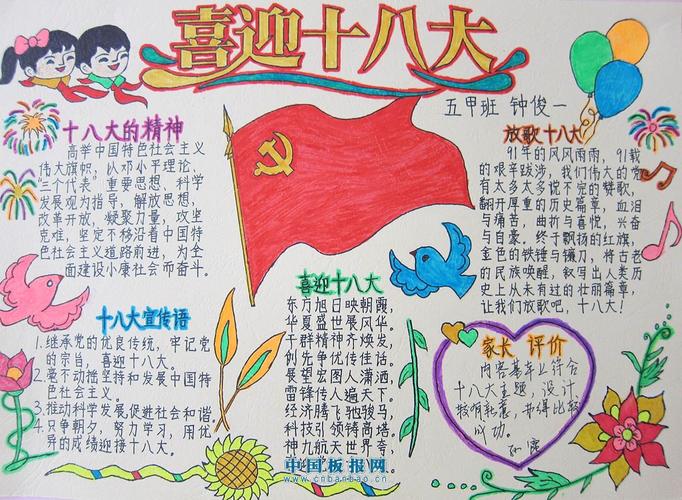 喜迎十八大
五甲班 钟俊一
十八大的精神
高举中国特色社会主义
伟大旗帜，以邓小平理论、
三个代表”重要思想、科学
发展观为指导，解放思想，
改革开放，凝聚力量，攻坚
克难，坚定不移沿着中国特
色社会主义道路前进，为全
面建设小康社会而奋斗。
放歌十八大
91年的风风雨雨，91载
的艰辛跋涉，我们伟大的党
有太多太多说不完的赞歌，
翻开厚重的历史篇章，血泪
与痛苦，曲折与喜悦，兴奋
与自豪。终于飘扬的红旗，
金色的铁锤与镰刀，将古老
的民族唤醒，叙写出人类历
史上从未有过的壮丽篇章，
让我们放歌吧，十八大！
十八大宣传语
1.继承党的优良传统，牢记党
的宗旨，喜迎十八大。
2.毫不动摇坚持和发展中国特
色社会主义。
3.推动科学发展，促进社会和谐。
4.只争朝夕，努力学习，用优
异的成绩迎接十八大。
喜迎十八大
东方旭日映朝霞，
华夏盛世展风华。
干群精神齐焕发，
创先争优传佳话。
展望宏图人潇洒，
雷锋传人遍天下。
经济腾飞驰骏马，
科技引领铸高塔。
神九航天世界夸，
家长 评价
内容基本上符合
十八大主题，设计
较有新意，安排比较
成功。
中国板报网
www.cnbanbao.cn